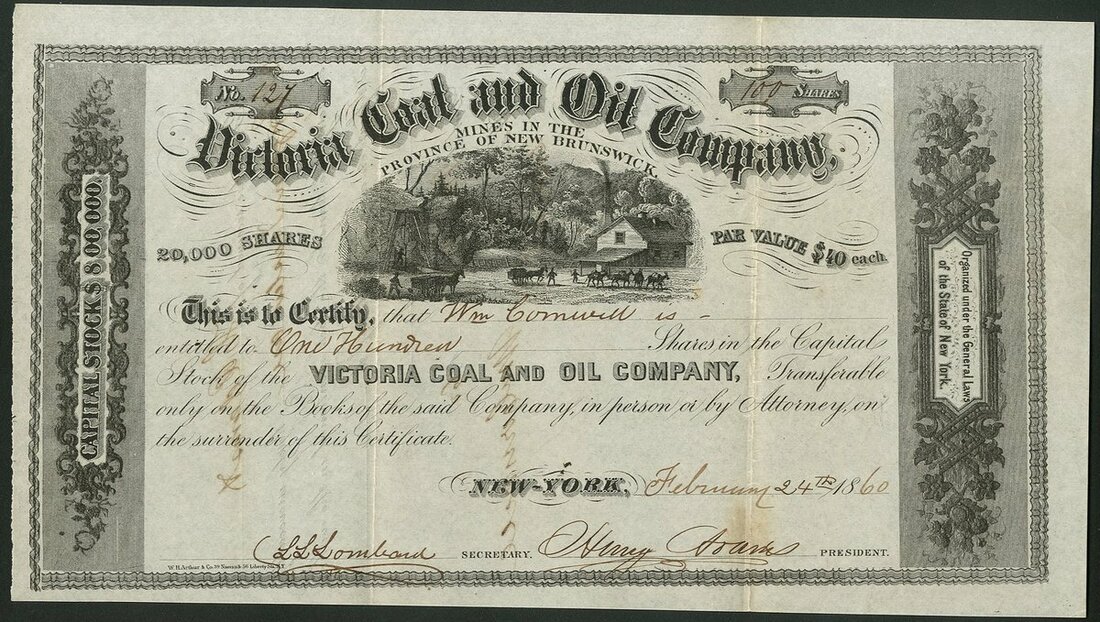 No. 127
100 SHARES
Victoria Coal and Oil Company,
MINES IN THE
PROVINCE OF NEW BRUNSWICK.
20,000 SHARES
PAR VALUE $40 each
CAPITAL STOCK $800,000.
Organized under the General Laws
of the State of New York.
This is to Certify, that Wm Cornwell is
entitled to One Hundred Shares in the Capital
Stock of the VICTORIA COAL AND OIL COMPANY, Transferable
only on the Books of the said Company, in person or by Attorney, on
the surrender of this Certificate.
NEW-YORK, February 24TH 1860
Lombard SECRETARY. Henry PRESIDENT.
W. H. Arthur & Co. 39 Nassau & 56 Liberty St. N.Y.